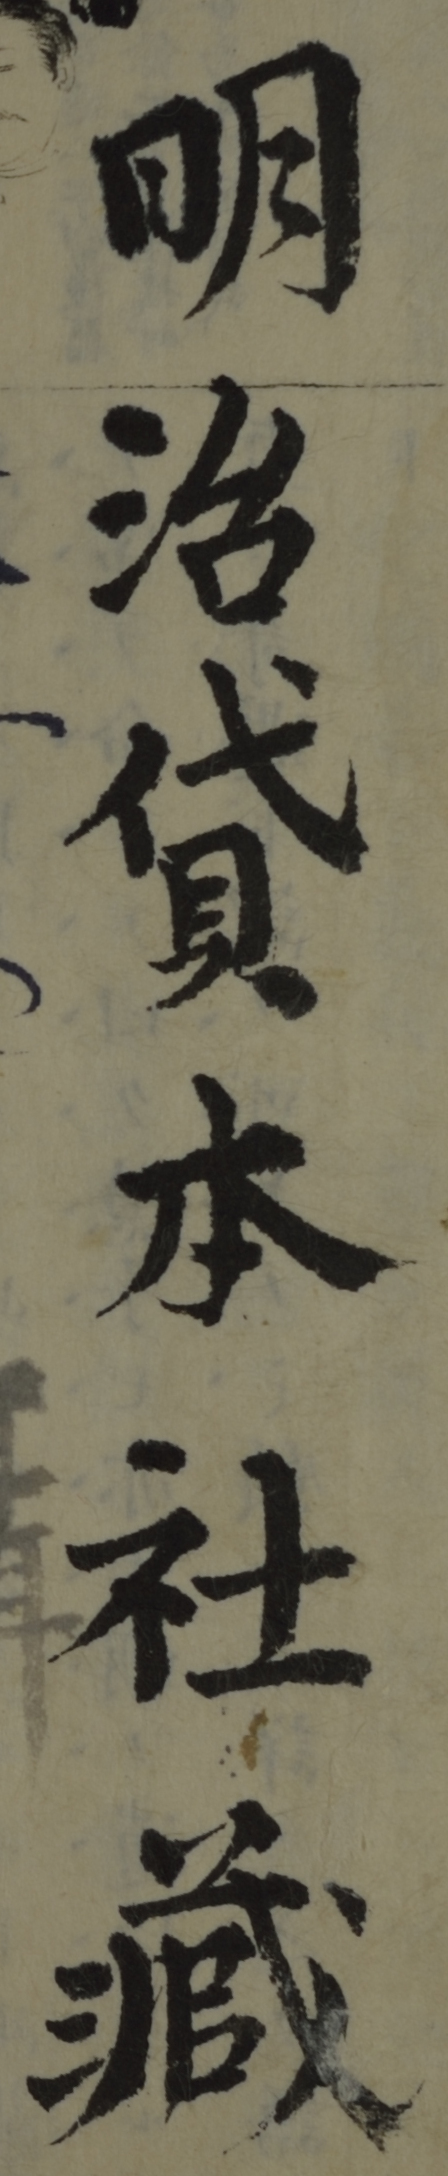 明治貸本社蔵